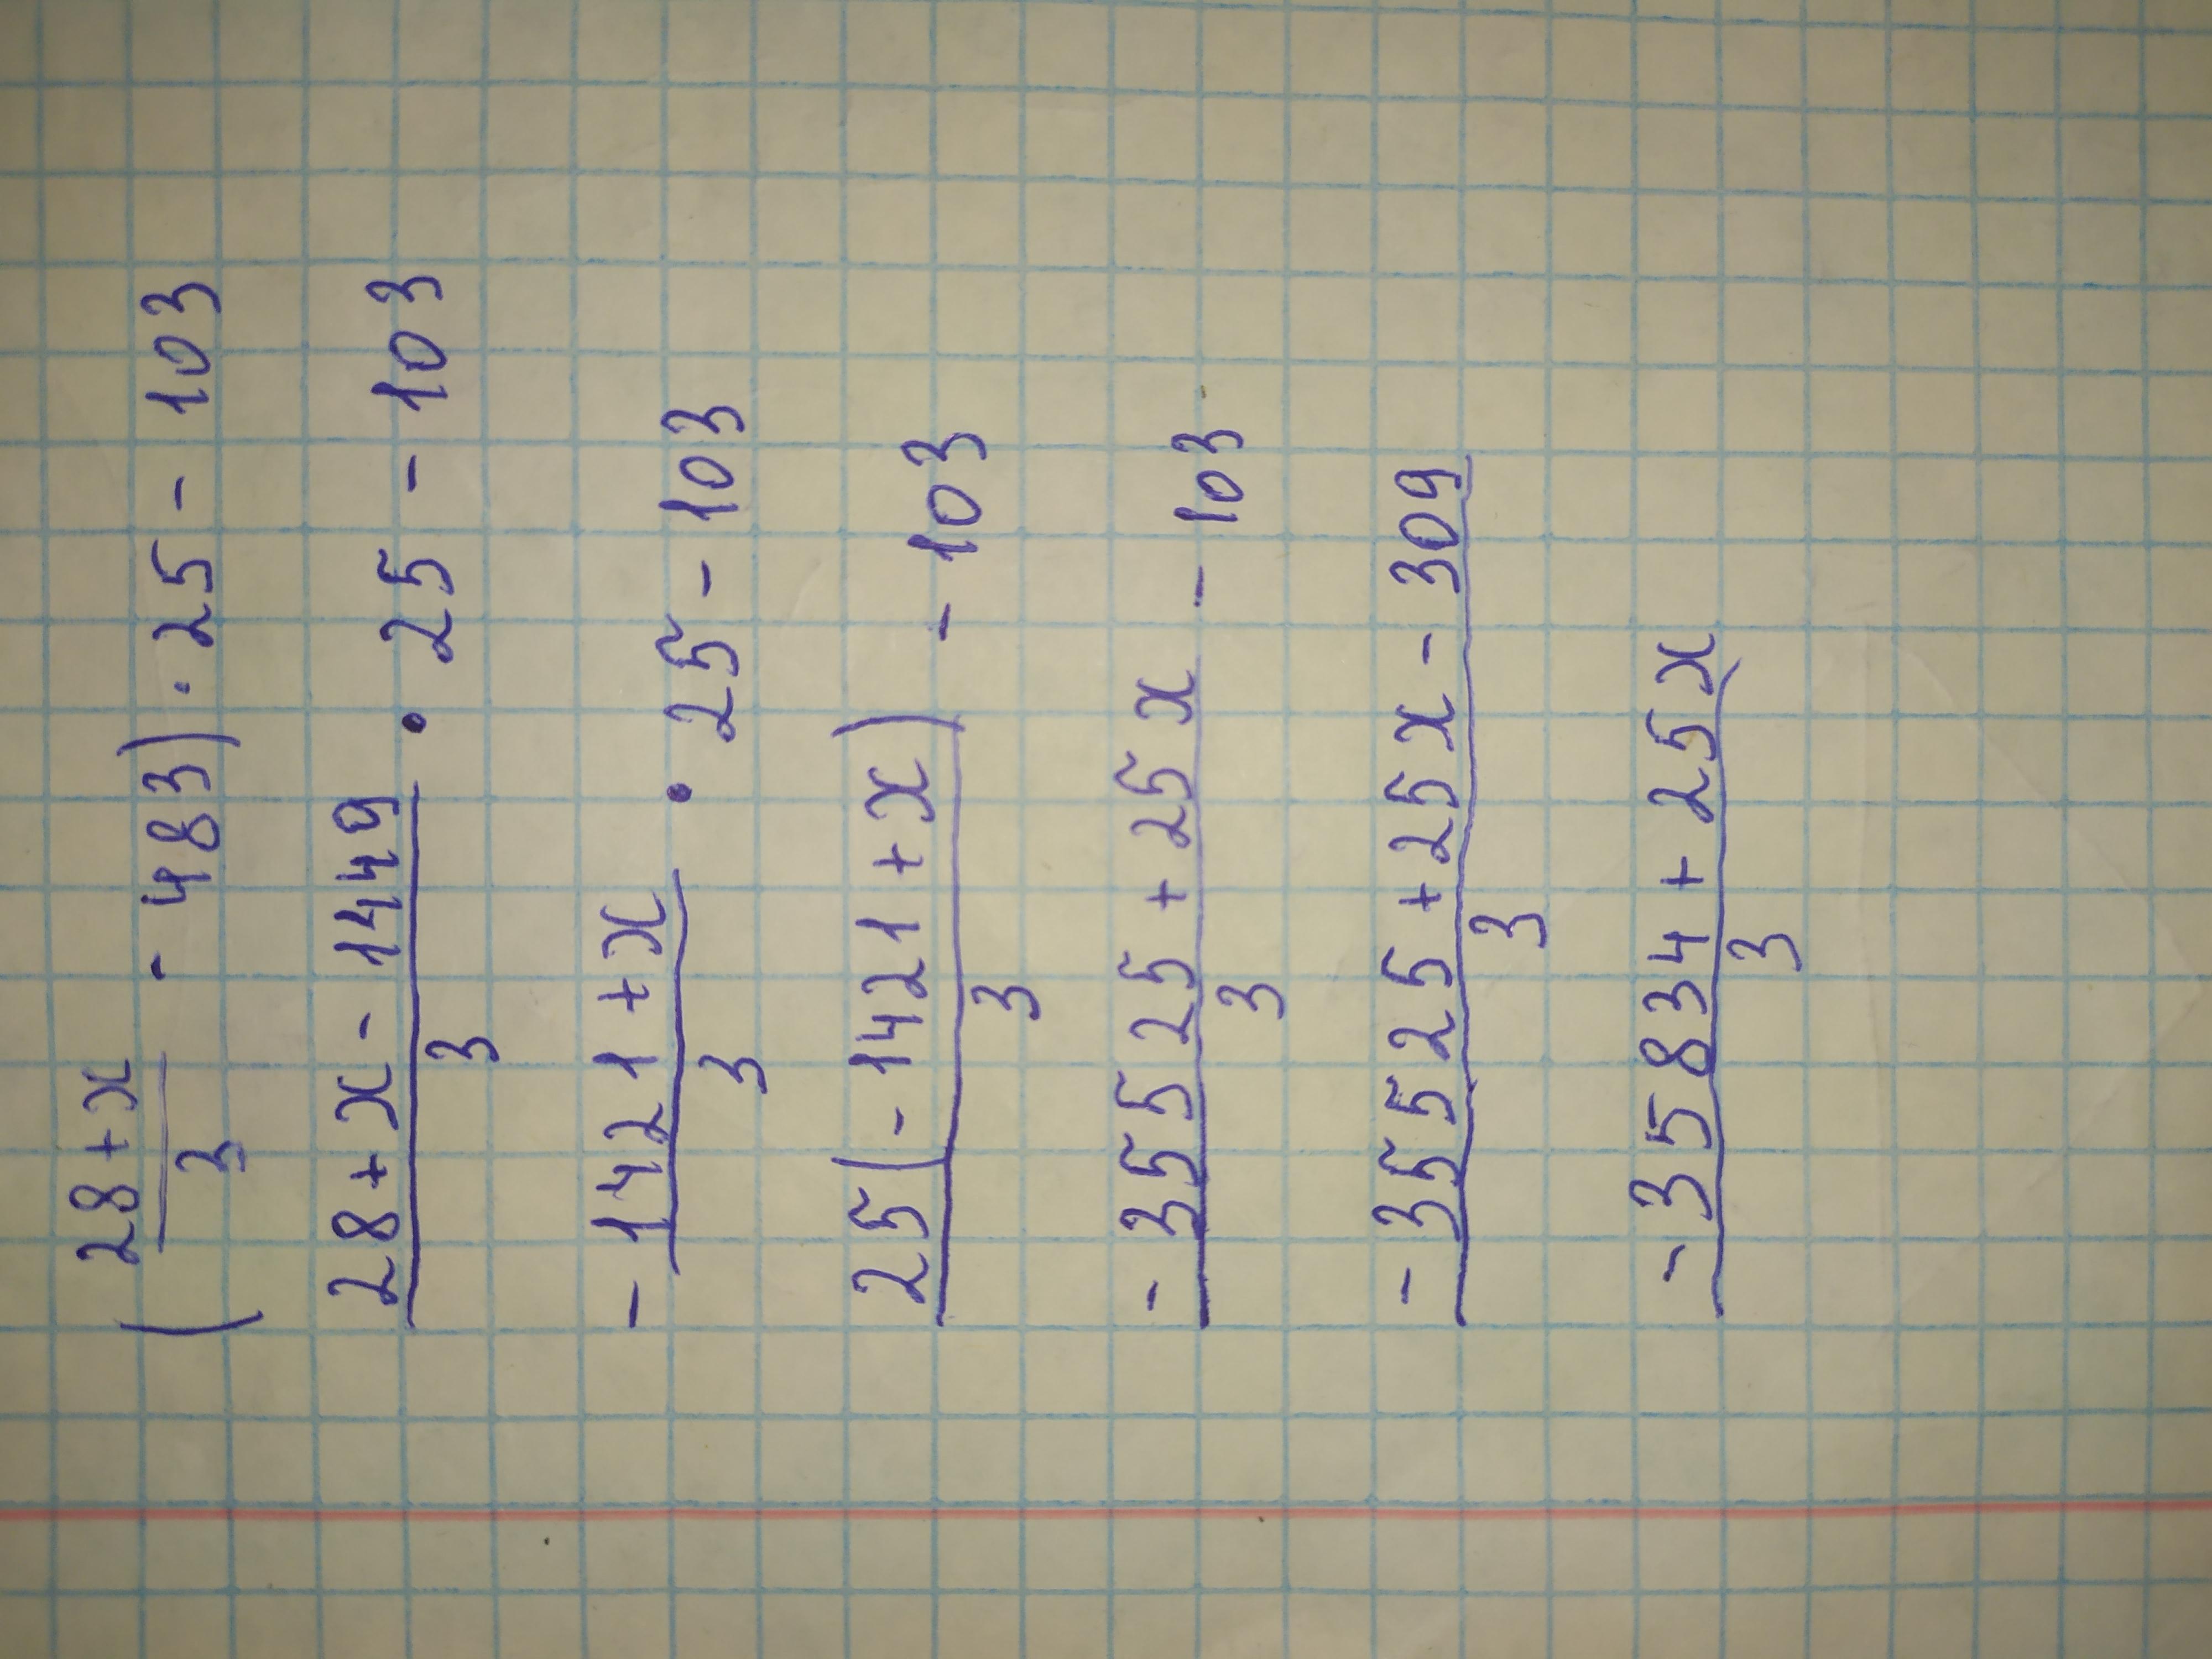 (28+x/3 - 483) · 25 - 103
28+x-1449/3 · 25 - 103
-1421+x/3 · 25 - 103
25(-1421+x)/3 - 103
-35525+25x/3 - 103
-35525+25x-309/3
-35834+25x/3